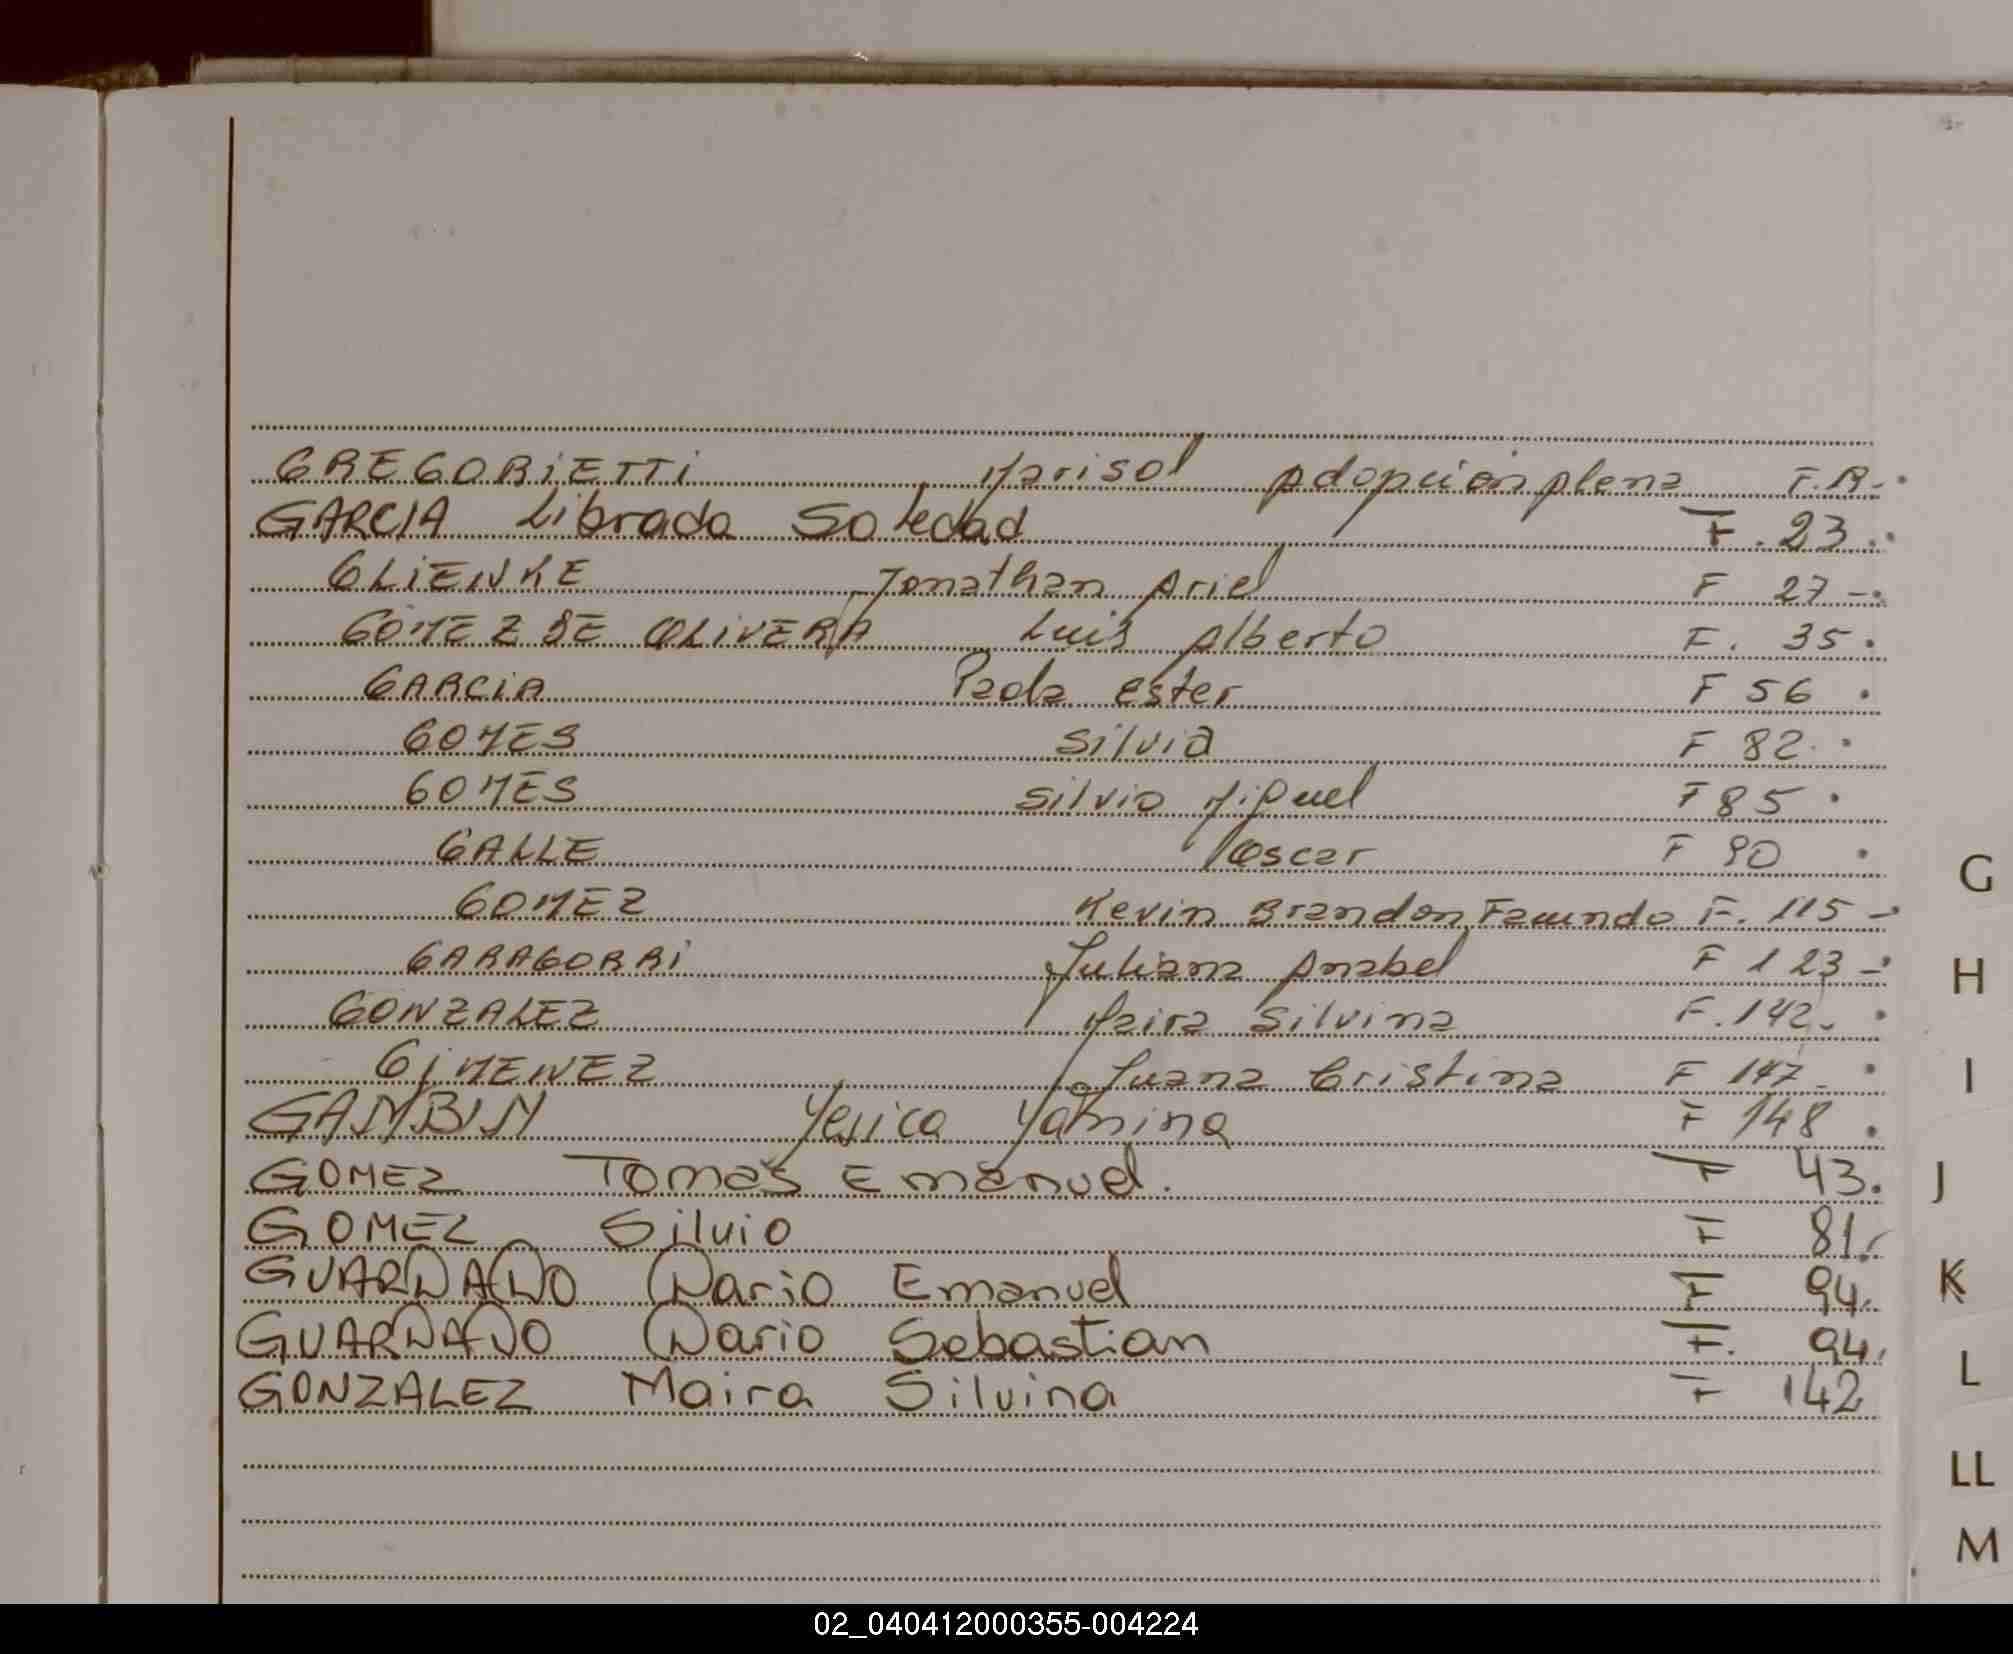 GREGORiETTi Marisol Adopción plena F.A.
GARCIA Librada Soledad F. 23.
GLiENKE Jonathan Ariel F 27-.
GOMEZ DE OLIVERA Luis Alberto F. 35.
GARCiA Paola Ester F 56 .
GOMES Silvia F 82.
GOMES Silvio Miguel F 85 .
GALLE Oscar F 90 .
GOMEZ Kevin Brandon Facundo F. 115 -
GARAGORRi Juliana Anabel F 123 -
GONZALEZ Maira Silvina F. 142. .
GiMENEZ Juana Cristina F 147. .
GAMBIN Yesica Yamina F 148 .
GOMEZ Tomas Emanuel. F 43.
GOMEZ Silvio F 81.
GUARDADO Dario Emanuel F 94.
GUARDADO Dario Sebastian F. 94.
GONZALEZ Maira Silvina F 142
G
H
I
J
K
L
LL
M
02_040412000355-004224